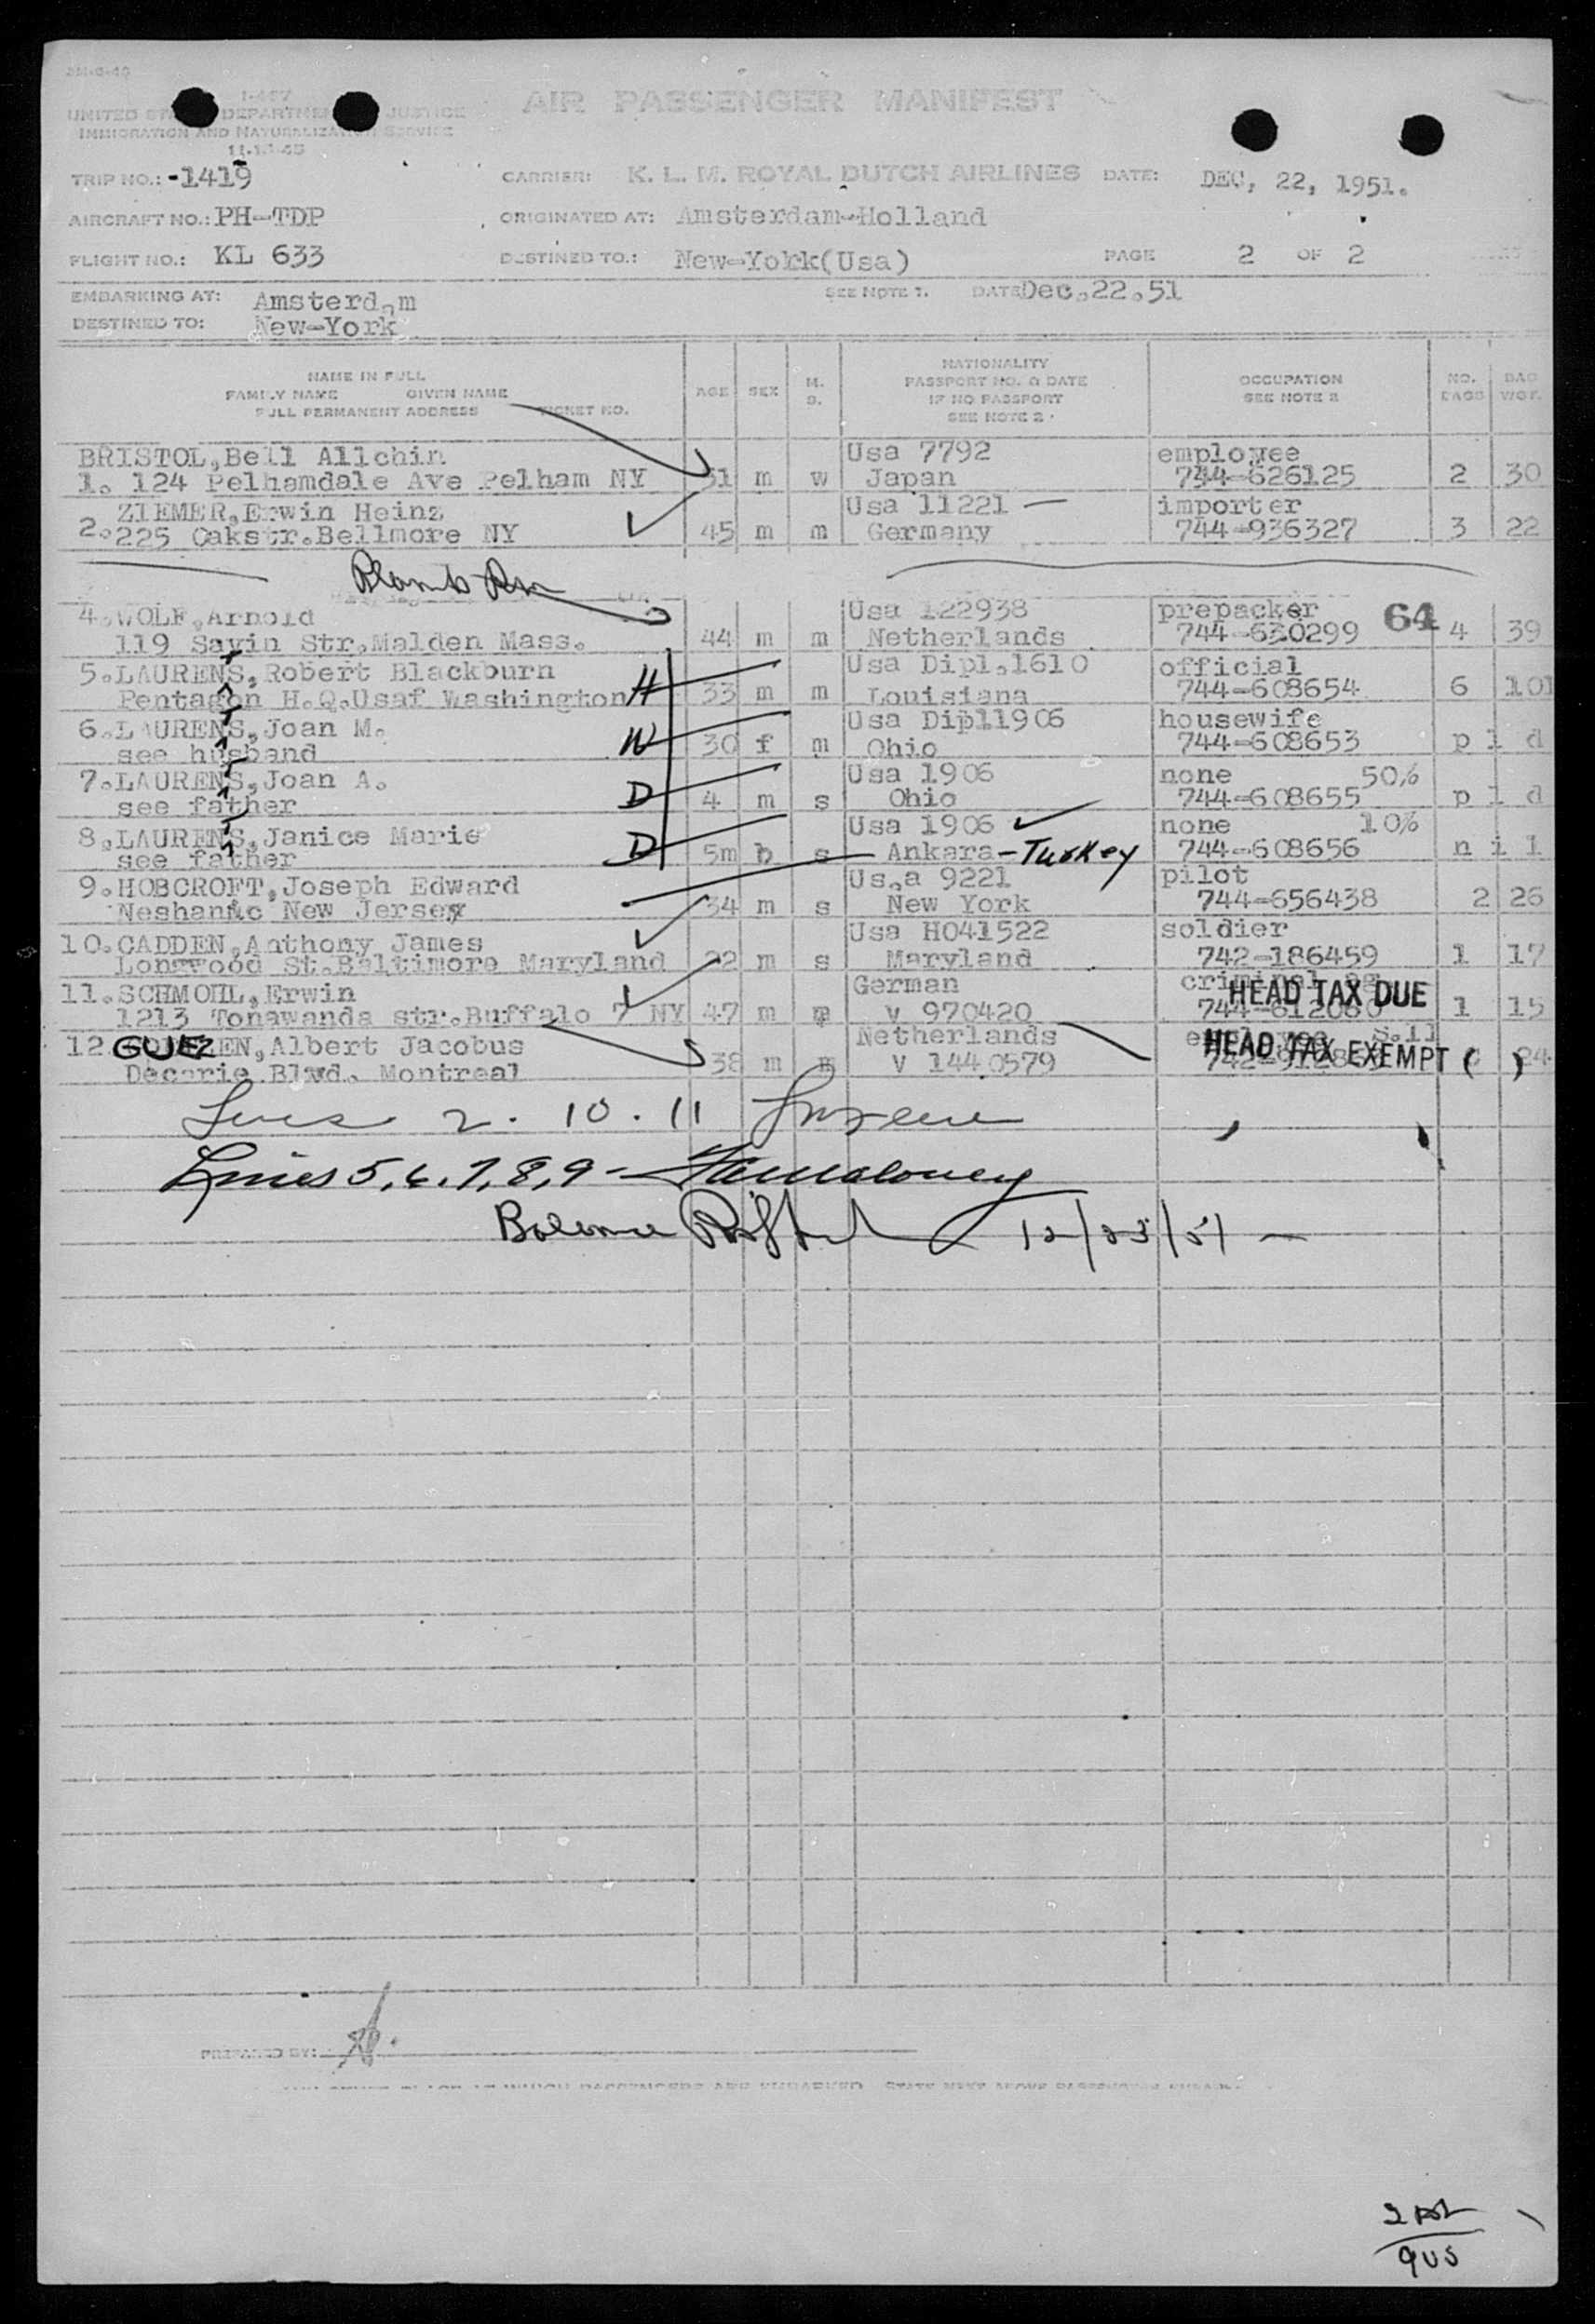 AIR PASSENGER MANIFEST
I-467
UNITED STATES DEPARTMENT JUSTICE
IMMIGRATION AND NATURALIZATION SERVICE
TRIP NO.: -1419 CARRIER: K. L. M. ROYAL DUTCH AIRLINES DATE: DEC, 22, 1951.
AIRCRAFT NO.: PH-TDP ORIGINATED AT: Amsterdam-Holland
FLIGHT NO.: KL 633 DESTINED TO.: New-York(Usa) PAGE 2 OF 2
EMBARKING AT: Amsterdam SEE NOTE 1. DATE Dec.22.51
DESTINED TO: New-York
NAME IN FULL
FAMILY NAME GIVEN NAME
FULL PERMANENT ADDRESS TICKET NO.
AGE SEX M. S.
NATIONALITY
PASSPORT NO. & DATE
IF NO PASSPORT
SEE NOTE 2.
OCCUPATION
SEE NOTE 2
NO. BAGS BAG WGT.
BRISTOL,Bell Allchin Usa 7792 employee
1. 124 Pelhamdale Ave Pelham NY 51 m w Japan 744-626125 2 30
ZIEMER,Erwin Heinz Usa 11221 importer
2.225 Oakstr.Bellmore NY 45 m m Germany 744-936327 3 22
4.WOLF,Arnold Usa 122938 prepacker 64
119 Savin Str.Malden Mass. 44 m m Netherlands 744-630299 4 39
5.LAURENS,Robert Blackburn Usa Dipl.1610 official
Pentagon H.Q.Usaf Washington H 33 m m Louisiana 744-608654 6 101
6.LAURENS,Joan M. Usa Dipl1906 housewife
see husband W 30 f m Ohio 744-608653 p l d
7.LAURENS,Joan A. Usa 1906 none 50%
see father D 4 m s Ohio 744-608655 p l d
8.LAURENS,Janice Marie Usa 1906 none 10%
see father D 5m b s Ankara-Turkey 744-608656 n i l
9.HOBCROFT,Joseph Edward Us.a 9221 pilot
Neshanic New Jersey 34 m s New York 744-656438 2 26
10.CADDEN,Anthony James Usa H041522 soldier
Longwood St.Baltimore Maryland 22 m s Maryland 742-186459 1 17
11.SCHMOHL,Erwin German criminal ag
1213 Tonawanda str.Buffalo 7 NY 47 m m V 970420 744-612080 HEAD TAX DUE 1 15
12. EN,Albert Jacobus Netherlands
Decarie Blvd. Montreal 38 m m V 1440579 HEAD TAX EXEMPT ( ) 24
2. 10. 11
Lines 5, 6, 7, 8, 9 -
Balance 12/23/51
PREPARED BY: